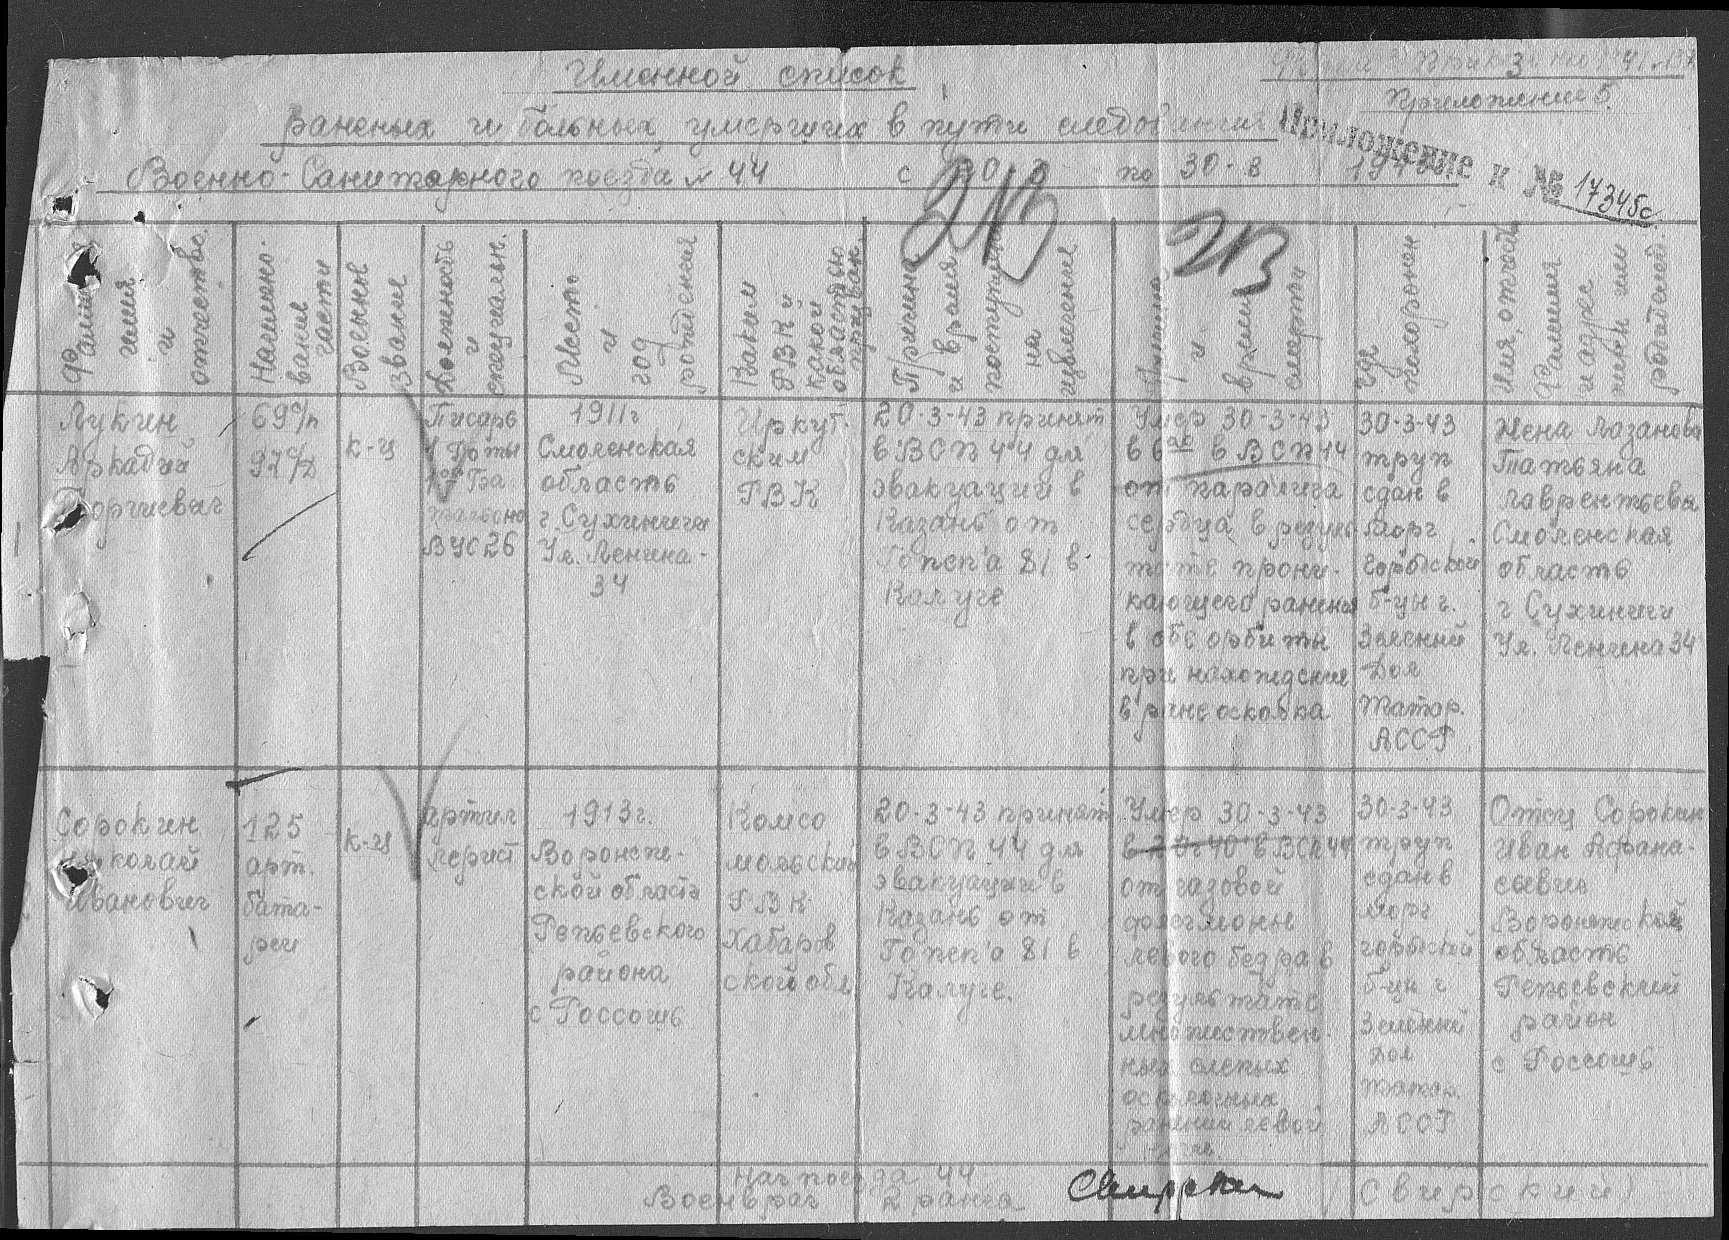 Именной список
Приложение 5
раненых и больных умерших в пути следования
Приложение к № 17345с
Военно-Санитарного поезда № 44 с по 30-3
213
213
Фамилия имя и отчество
Наименование части
Военное звание
Должность и специальн.
Место и год рождения
Каким РВК и какой областью призван
Причина и время поступления на излечение
и время смерти
Где похоронен
Имя, отчество Фамилия и адрес жены или родителей
Лукин
Аркадий
Георгиевич
69 с/п
97 с/д
к-ц
Писарь
1 Роты
Ба
тальона
ВУС 26
1911 г
Смоленская
область
г. Сухиничи
Ул. Ленина-
34
Иркут-
ским
ГВК
20-3-43 принят
в ВСП 44 для
эвакуации в
Казань от
Гопеп'а 81 в
Калуге
Умер 30-3-43
в 6 00 в ВСП 44
от паралича
сердца в резуль
тате прони-
кающего ранения
в обе орбиты
при нахождение
в ране осколка
30-3-43
труп
сдан в
морг
городской
б-цы г.
Зеленый
Дол
Татар.
АССР
Жена Лазанова
Татьяна
Лаврентьевна
Смоленская
область
г Сухиничи
Ул. Ленина 34
Сорокин
Николай
Иванович
125
арт.
бата-
реи
к-ц
артил
лерист
1913 г.
Воронеж-
ской области
Репьевского
района
с Россошь
Комсо
мольский
РВК
Хабаров
ской обл
20-3-43 принят
в ВСП 44 для
эвакуации в
Казань от
Гопеп'а 81 в
Калуге.
Умер 30-3-43
в ВСП 44
от газовой
флегмоны
левого бедра в
результате
множествен-
ных слепых
осколочных
ранений левой
30-3-43
труп
сдан в
морг
городской
б-цы г
Зеленый
Дол
Татар.
АССР
Отец Сорокин
Иван Афана-
сьевич
Воронежской
область
Репьевский
район
с Россошь
Нач поезда 44
Военврач 2 ранга Свирский Свирский